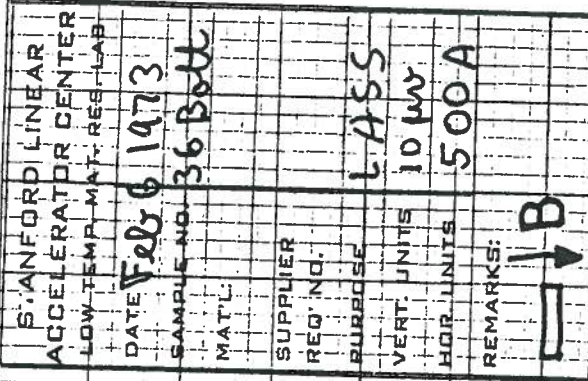 STANFORD LINEAR
ACCELERATOR CENTER
LOW TEMP. MAT. RES. LAB
DATE Feb 6 1973
SAMPLE NO. 36 Bott
MAT'L:
SUPPLIER
REQ' NO.
PURPOSE LASS
VERT. UNITS 10 μv
HOR. UNITS 500 A
REMARKS:
B